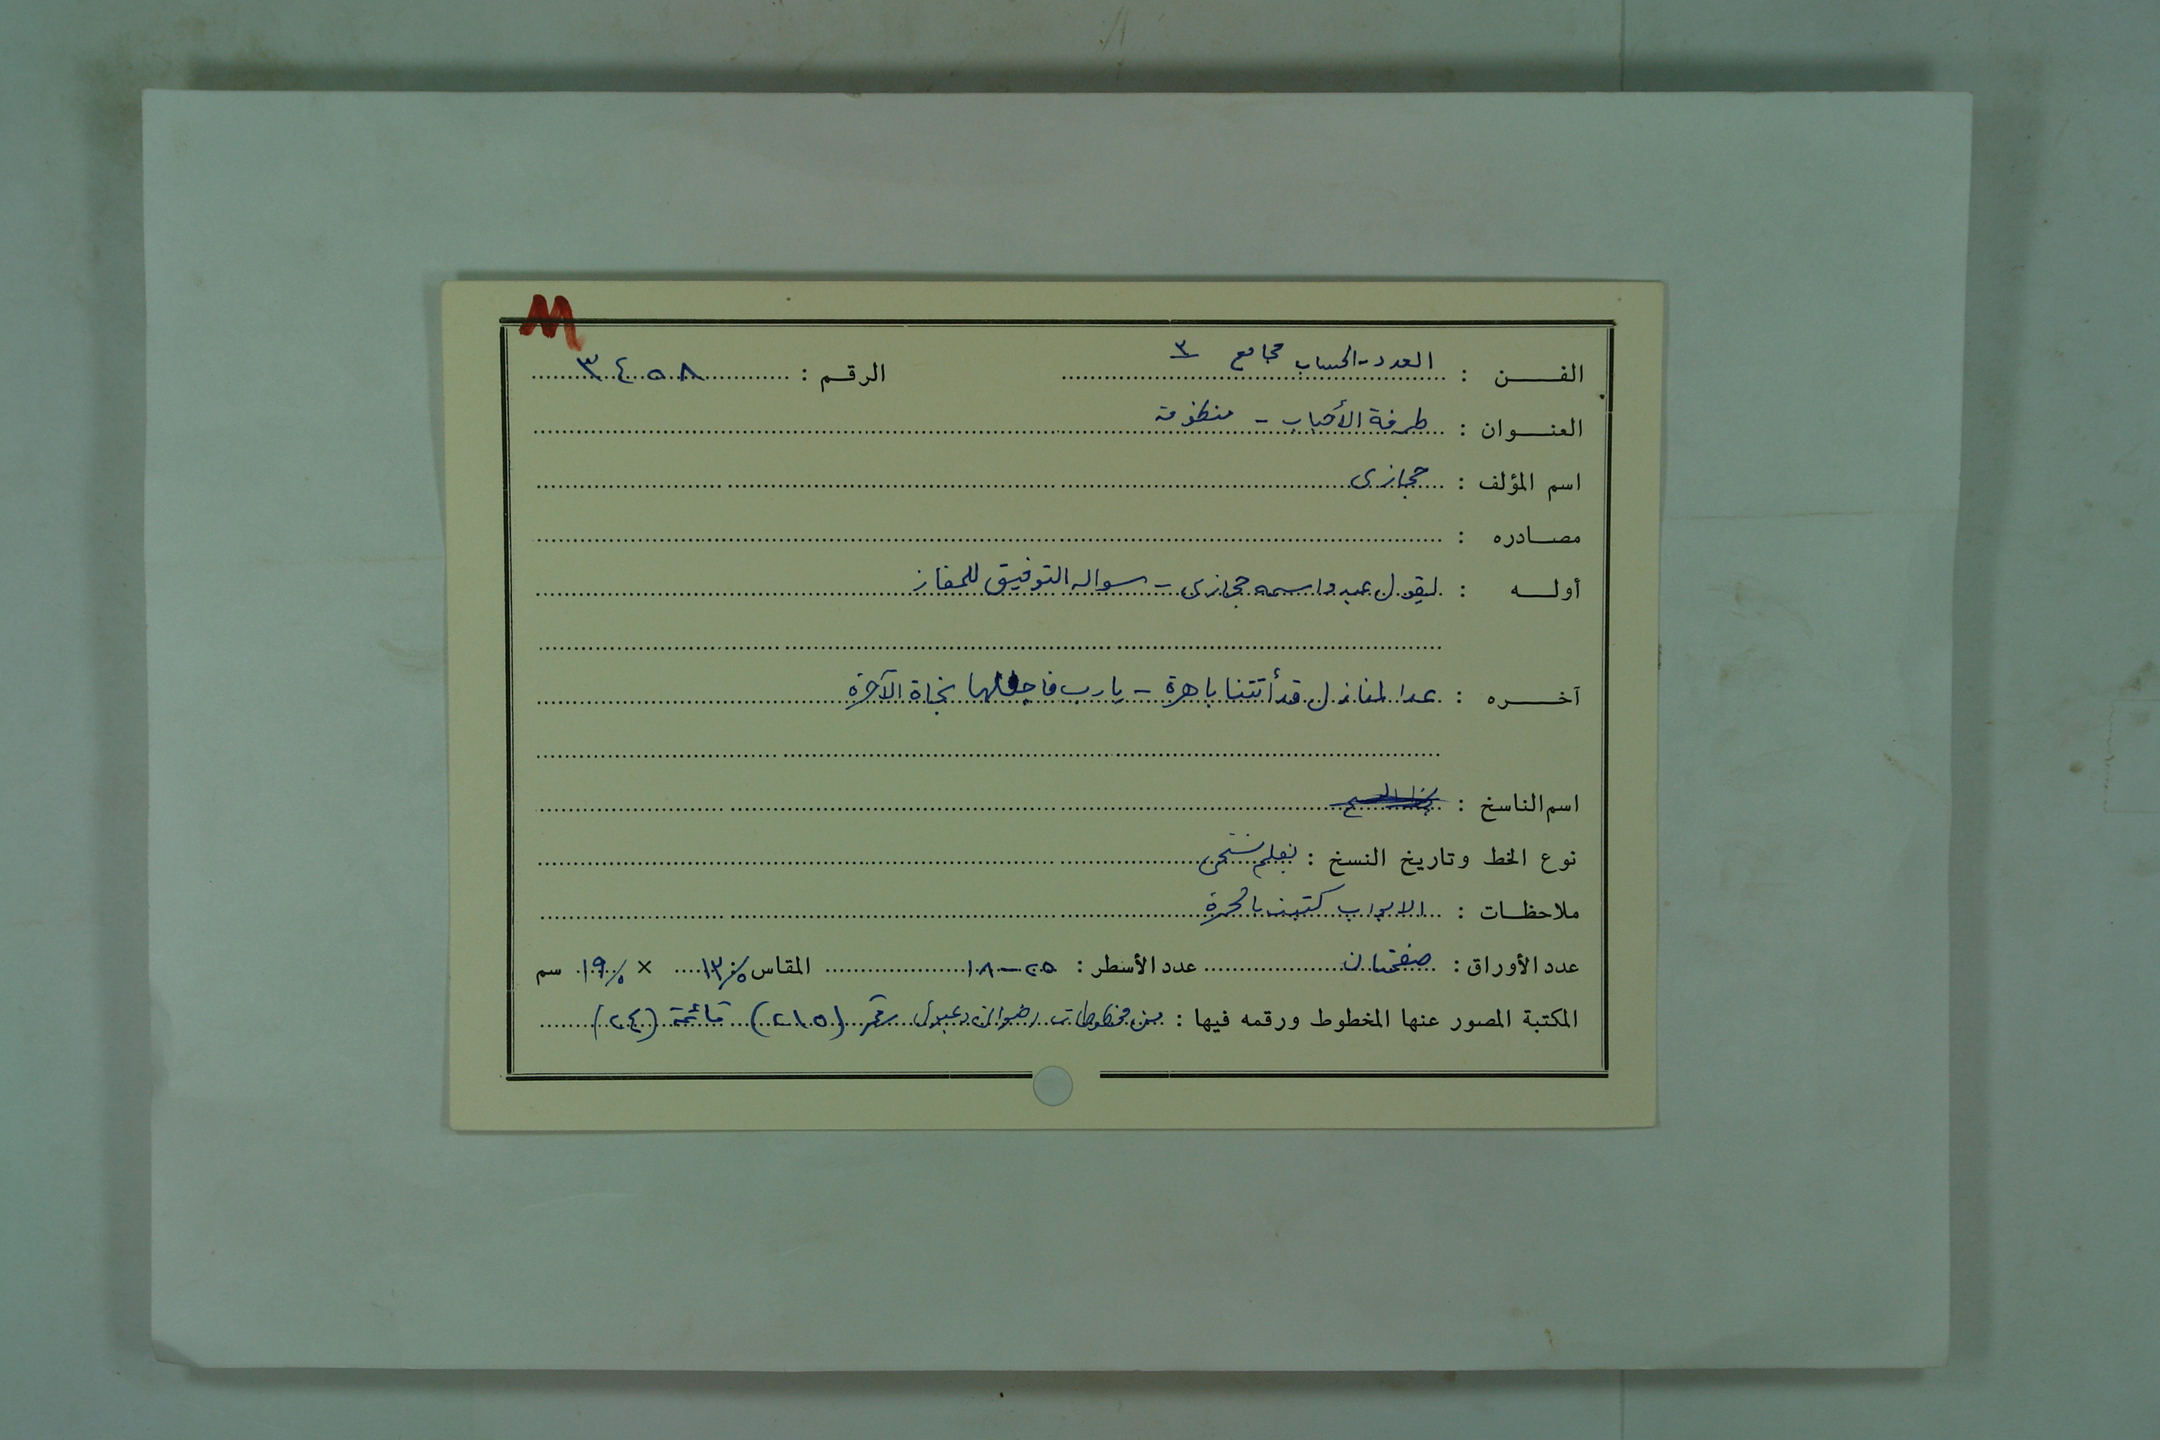 M
الفـــن : العدد - الحساب مجامع ٣ الرقـم : ٣٤٥٨
العنــوان : طرفة الأحباب - منظومة
اسم المؤلف : حجازى
مصــادره :
أولـــه : يقول عبد واسمه حجازى - سواله التوفيق للمفاز
آخـــره : عدا لمنازل قد أتتنا باهرة - يارب فاجعلها نجاة الآخرة
اسم الناسخ :
نوع الخط وتاريخ النسخ : بقلم نسخى
ملاحظــات : الابواب كتبت بالحمرة
عدد الأوراق : صفحتان عدد الأسطر : ٢٥ - ١٨ المقاس ١٣/٥ × ١٩/٥ سم
المكتبة المصور عنها المخطوط ورقمه فيها : من مخطوطات رضوان دعبول رقم (٢١٥) قائمة (٢٤)